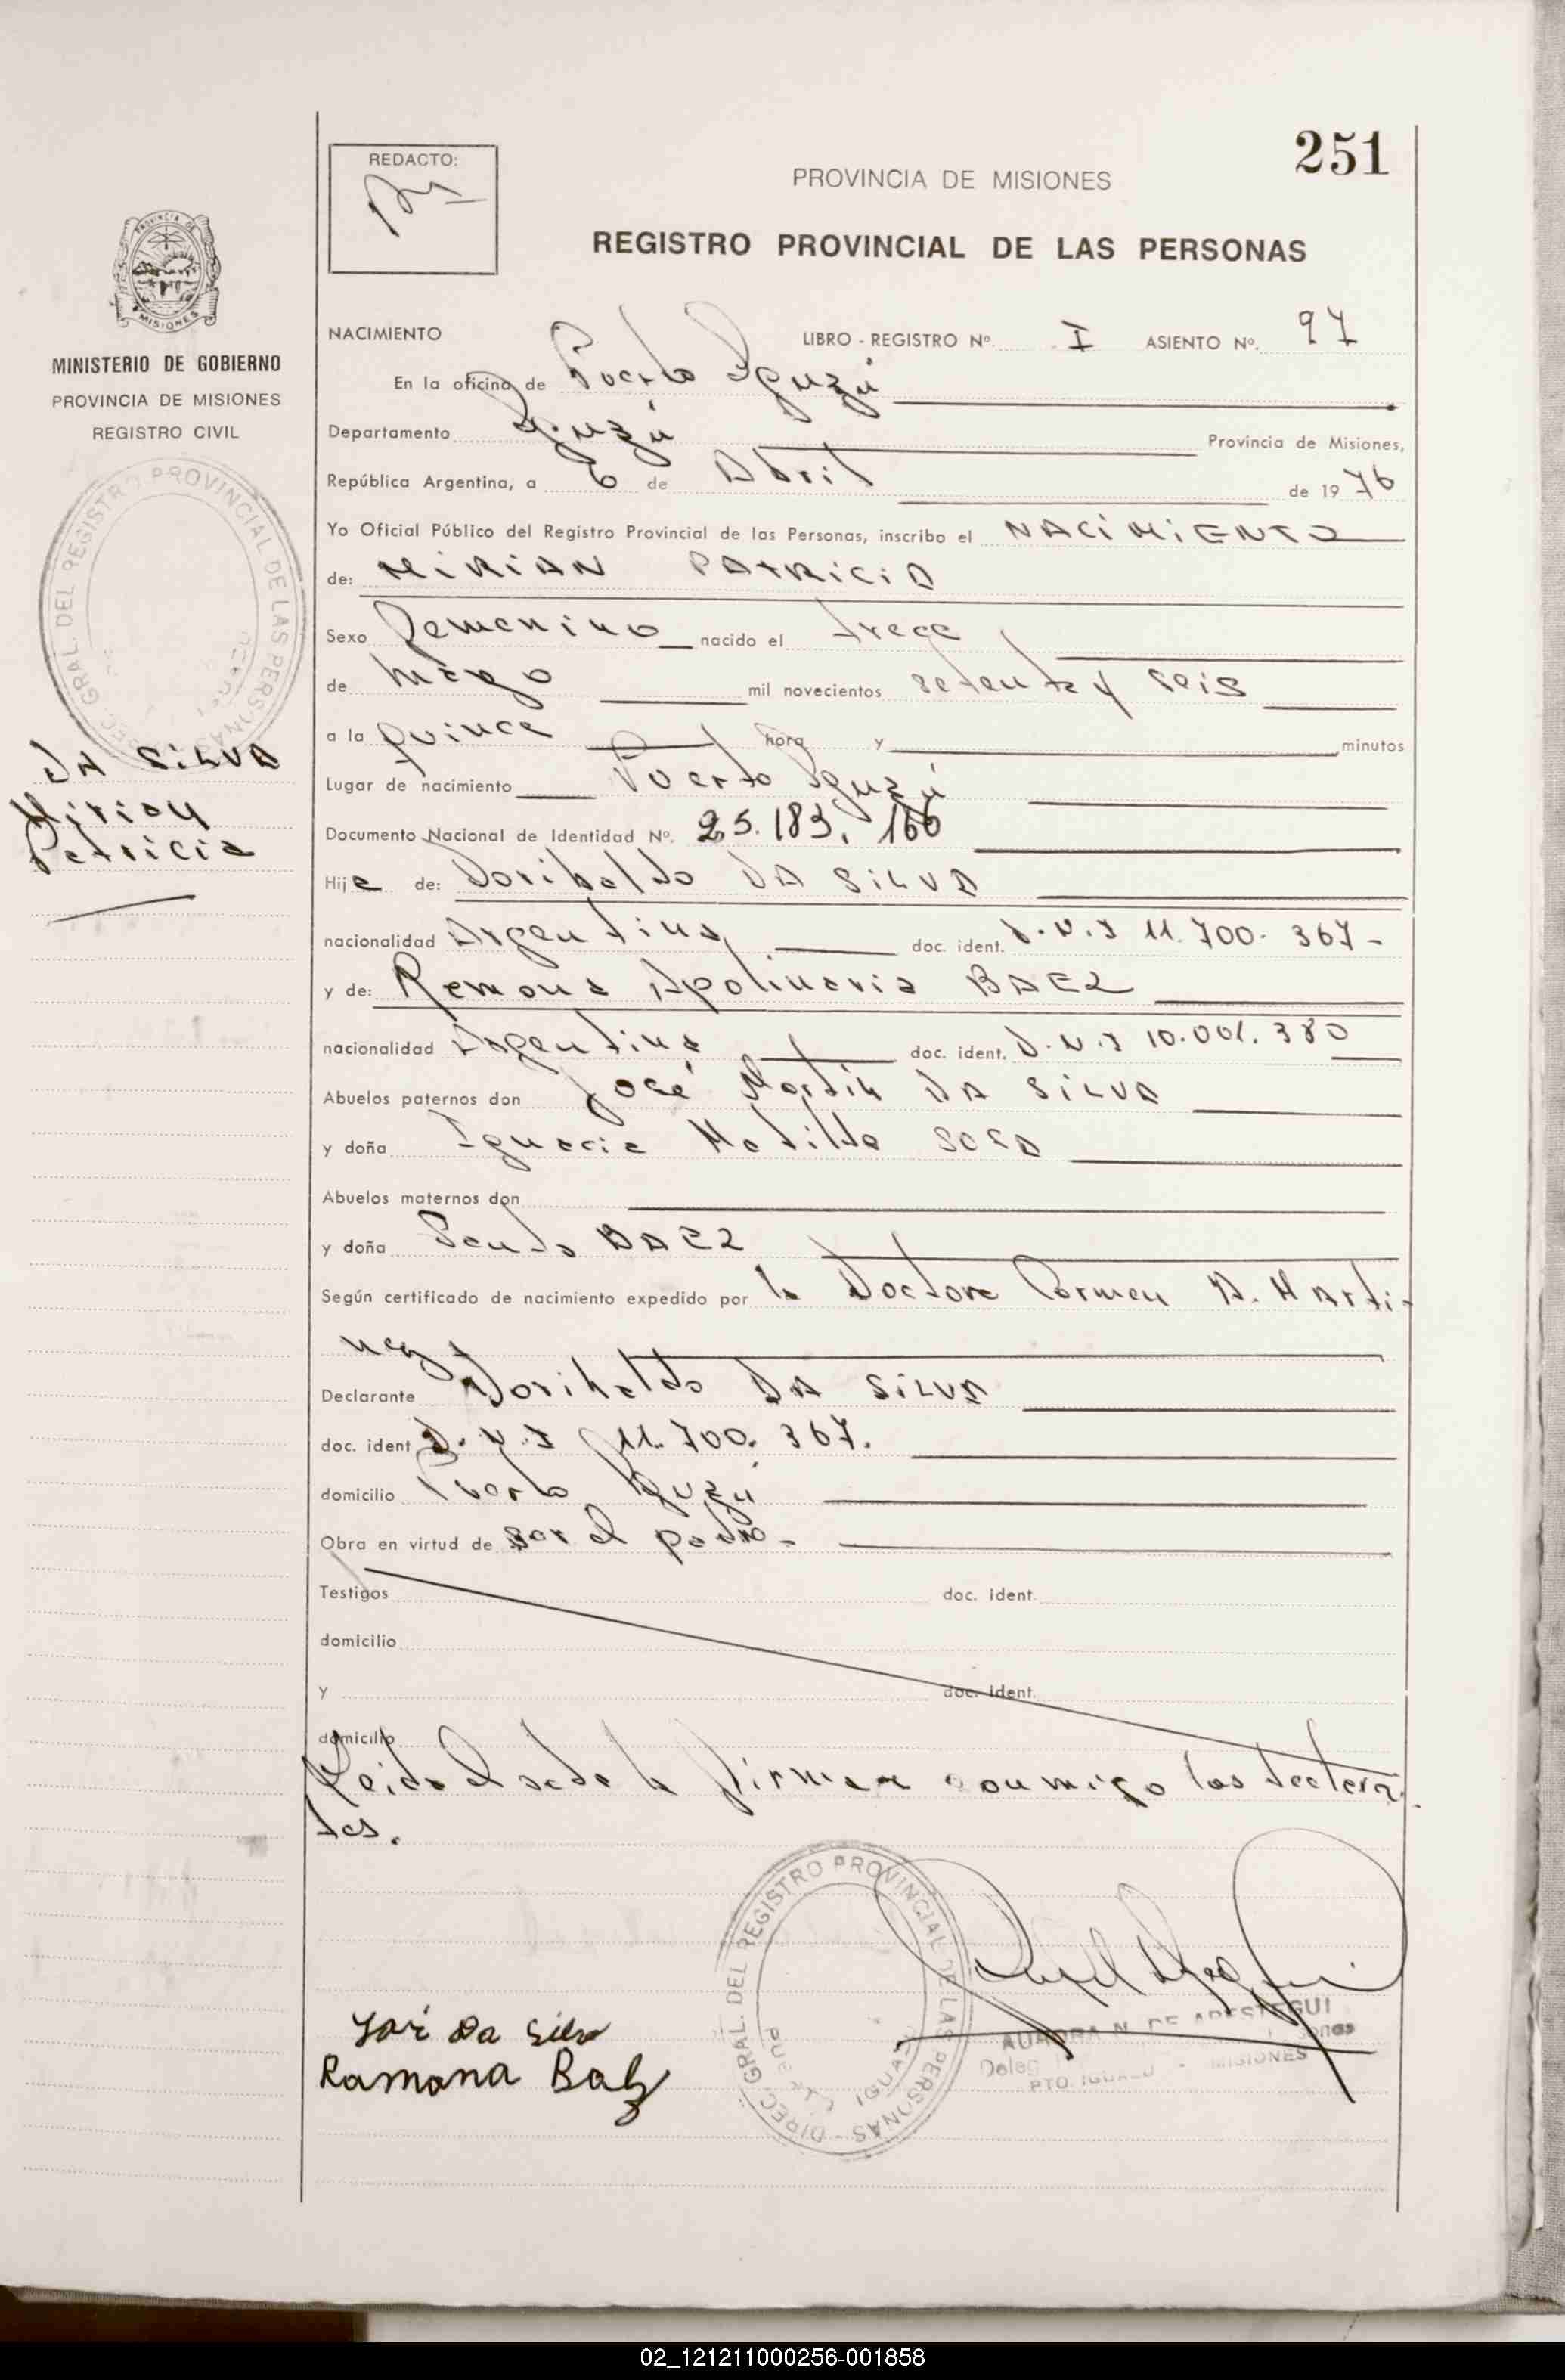 251
REDACTO:
PROVINCIA DE MISIONES
REGISTRO PROVINCIAL DE LAS PERSONAS
PROVINCIA DE
MISIONES
MINISTERIO DE GOBIERNO
PROVINCIA DE MISIONES
REGISTRO CIVIL
DIREC. GRAL. DEL REGISTRO PROVINCIAL DE LAS PERSONAS
DA SILVA
Mirian
Patricia
NACIMIENTO LIBRO - REGISTRO Nº. I ASIENTO Nº. 97
En la oficina de Puerto Iguazú
Departamento Iguazú Provincia de Misiones,
República Argentina, a 6 de Abril de 1976
Yo Oficial Público del Registro Provincial de las Personas, inscribo el NACIMIENTO
de: MIRIAN PATRICIA
Sexo Femenino nacido el trece
de mil novecientos setenta y seis
a la quince hora y minutos
Lugar de nacimiento Puerto Iguazú
Documento Nacional de Identidad Nº. 25.183.166
Hija de: Doribaldo DA SILVA
nacionalidad Argentina doc. ident. D.N.I 11.700.367-
y de: Ramona Apolinaria BAEZ
nacionalidad Argentina doc. ident. D.N.I 10.001.380
Abuelos paternos don José Martín DA SILVA
y doña Ignacia Matilde SOSA
Abuelos maternos don
y doña BAEZ
Según certificado de nacimiento expedido por la Doctora Carmen A. Marti-
nez
Declarante Doribaldo DA SILVA
doc. ident D.N.I 11.700.367.
domicilio Puerto Iguazú
Obra en virtud de ser el padre-
Testigos doc. ident.
domicilio
y doc. ident.
domicilio
Leida el acta la firman conmigo los declaran
tes.
DIREC. GRAL. DEL REGISTRO PROVINCIAL DE LAS PERSONAS
PUERTO IGUAZU
AURORA N. DE ARESTEGUI
Deleg
PTO. IGUAZU - MISIONES
Da Silva
Ramona Baez
02_121211000256-001858